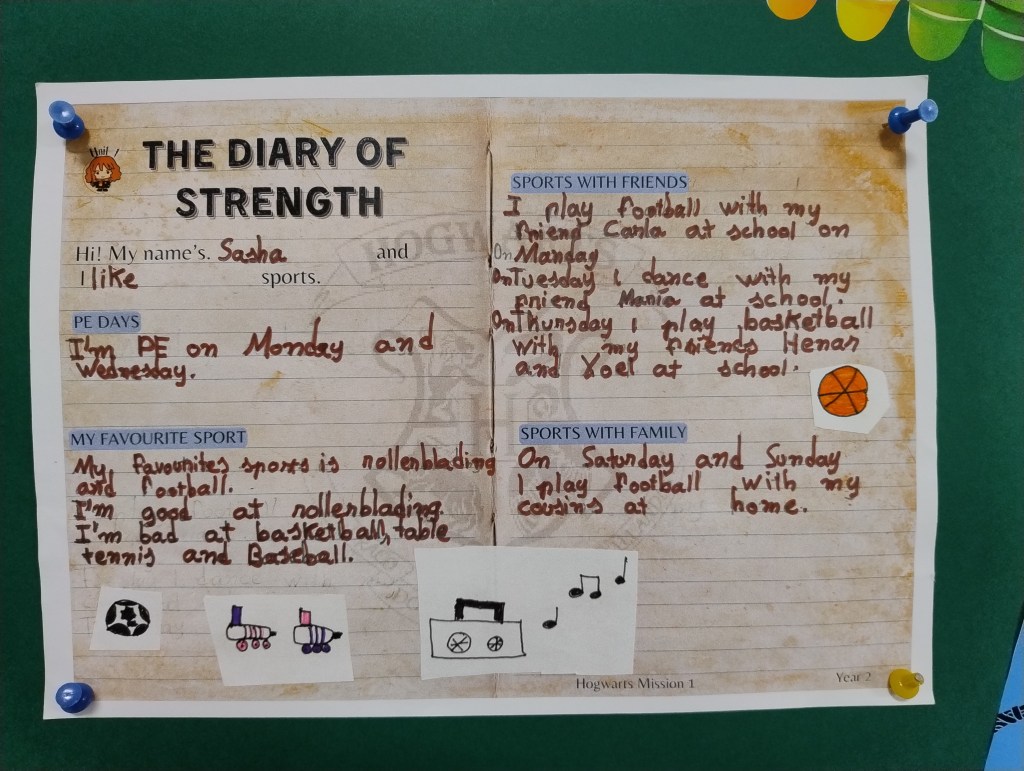 Unit 1
THE DIARY OF
STRENGTH
Hi! My name's. Sasha and
I like sports.
PE DAYS
I'm PE on Monday and
Wednesday.
MY FAVOURITE SPORT
My favourites sports is rollerblading
and football.
I'm good at rollerblading.
I'm bad at basketball, table
tennis and Baseball.
SPORTS WITH FRIENDS
I play football with my
friend Carla at school on
On Manday
On Tuesday I dance with my
friend María at school.
On Thursday I play basketball
with my friends Henar
and Yoel at school.
SPORTS WITH FAMILY
On Saturday and Sunday
I play football with my
cousins at home.
HOGWARTS
Hogwarts Mission 1
Year 2